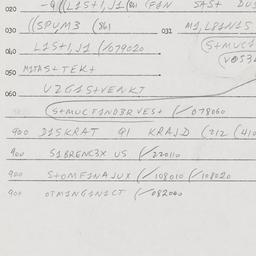 020 -9((L1S+1,J1 (841 (FGN SAS+ DUS
030 ((SPUM3 (841 031 M1,L81N1S
040 L1S+1,J1 /079020 (S+MUC1
050 M1TAS+TEK+ (V053
060 V2G1S+VENKT
(S+MUCF1ND3RVES+ (/078060
900 D1SKRAT Q1 KRAJD (212 (410
900 S1BRENC3X US (/220110
900 S+OMF1NAJUX (/108010 (/108020
900 OTM1NG1N1CT (/082040